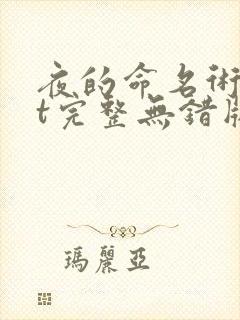 夜的命名術
t完整無錯版
瑪麗亞